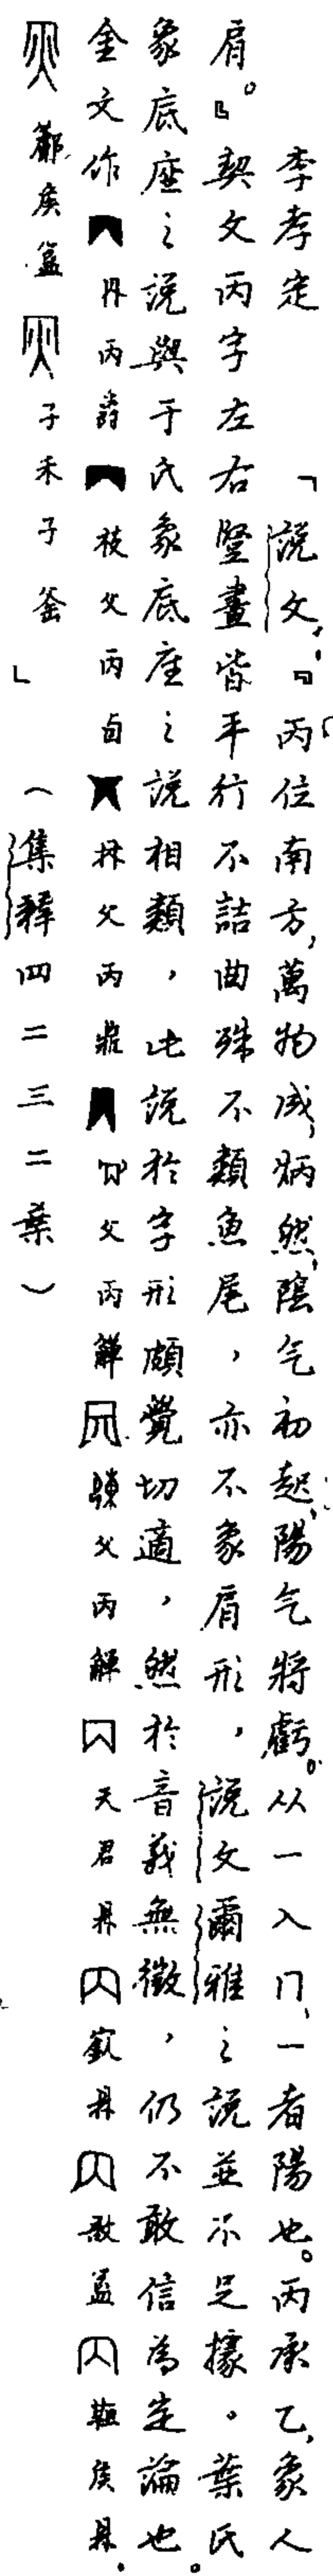 李孝定 「說文：『丙位南方，萬物成，炳然，陰气初起，陽气將虧。从一入冂，一者陽也。丙承乙，象人
肩。』契文丙字左右豎畫皆平行不詰曲殊不類魚尾，亦不象肩形，說文爾雅之說並不足據。葉氏
象底座之說與于氏象底座之說相類，此說於字形頗覺切適，然於音義無徵，仍不敢信為定論也。
金文作 丙 父丙卣 父丙鼎 父丙觶 父丙觶 天君鼎 鼎 㪤蓋 侯鼎
侯簋 子禾子釜 」（集釋四二三二葉）